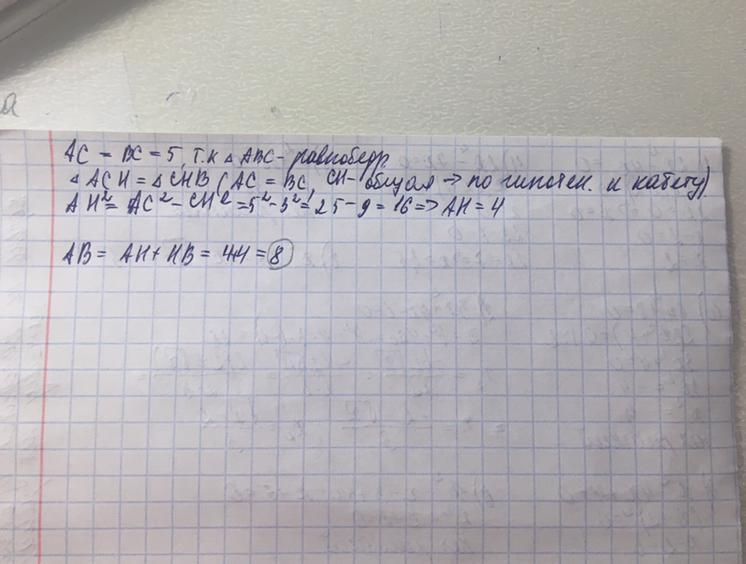 AC = BC = 5, т.к △ ABC - равнобедр.
△ ACH = △ CHB (AC = BC, CH - общая → по гипотен. и катету)
AH² = AC² - CH² = 5² - 3² = 25 - 9 = 16 => AH = 4
AB = AH + HB = 4+4 = 8